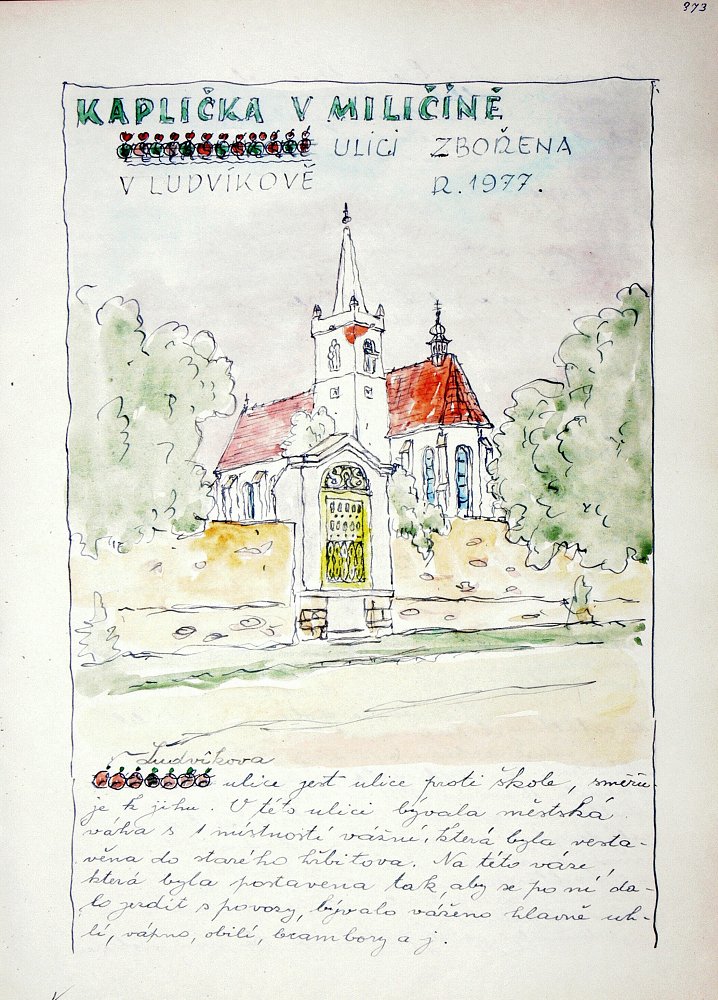 973
KAPLIČKA V MILIČÍNĚ
ULICI ZBOŘENA
V LUDVÍKOVĚ R. 1977.
Ludvíkova
ulice jest ulice proti škole, směřu-
je k jihu. V této ulici bývala městská
váha s 1 místností vážní, která byla vesta-
věna do starého hřbitova. Na této váze,
která byla postavena tak, aby se po ní da-
lo jezdit s povozy, bývalo váženo hlavně uh-
lí, vápno, obilí, brambory a j.